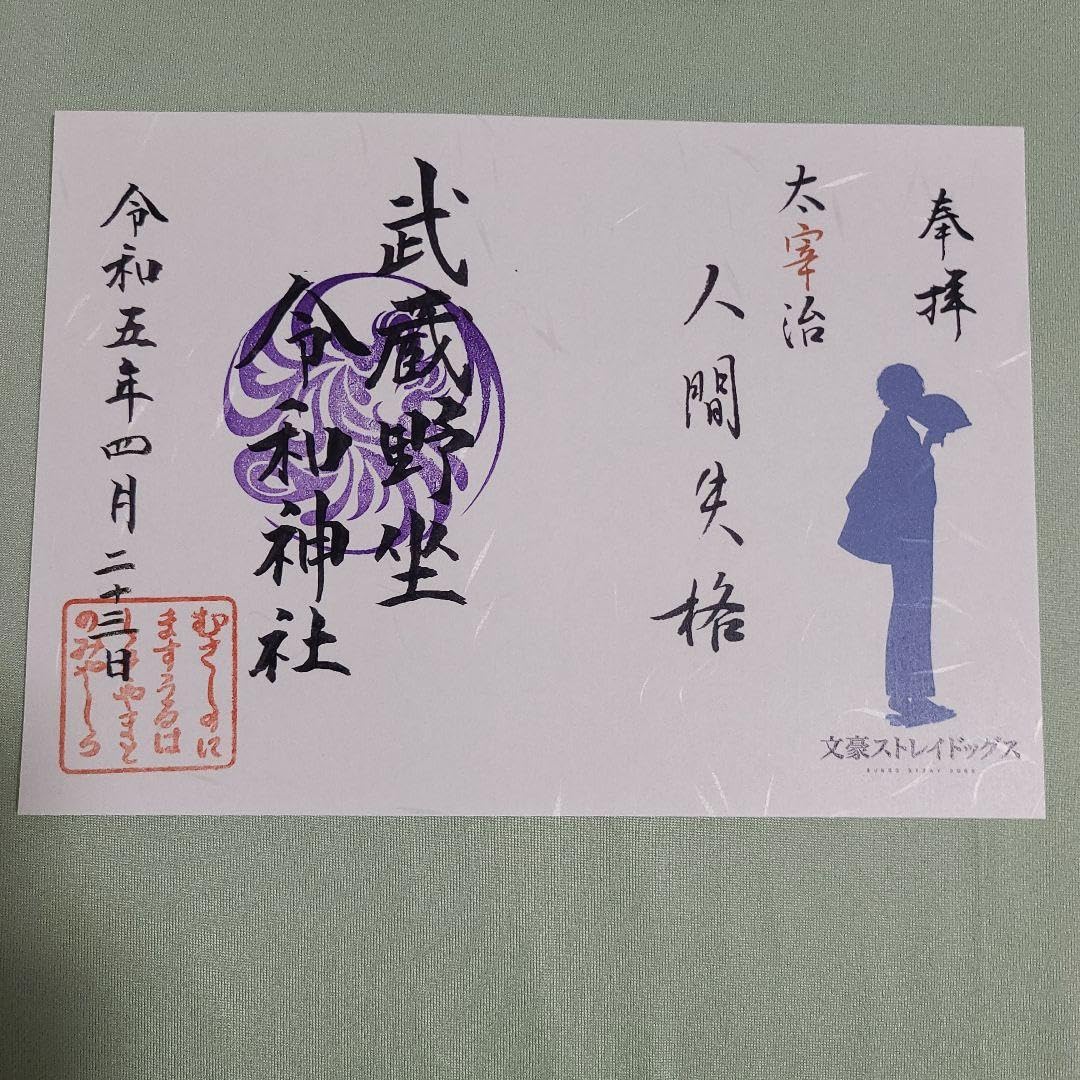 奉拝
太宰治
人間失格
文豪ストレイドッグス
BUNGO STRAY DOGS
武蔵野坐
令和神社
令和五年四月二十三日
むさしのに
ますうるは
しきやまと
のみやしろ